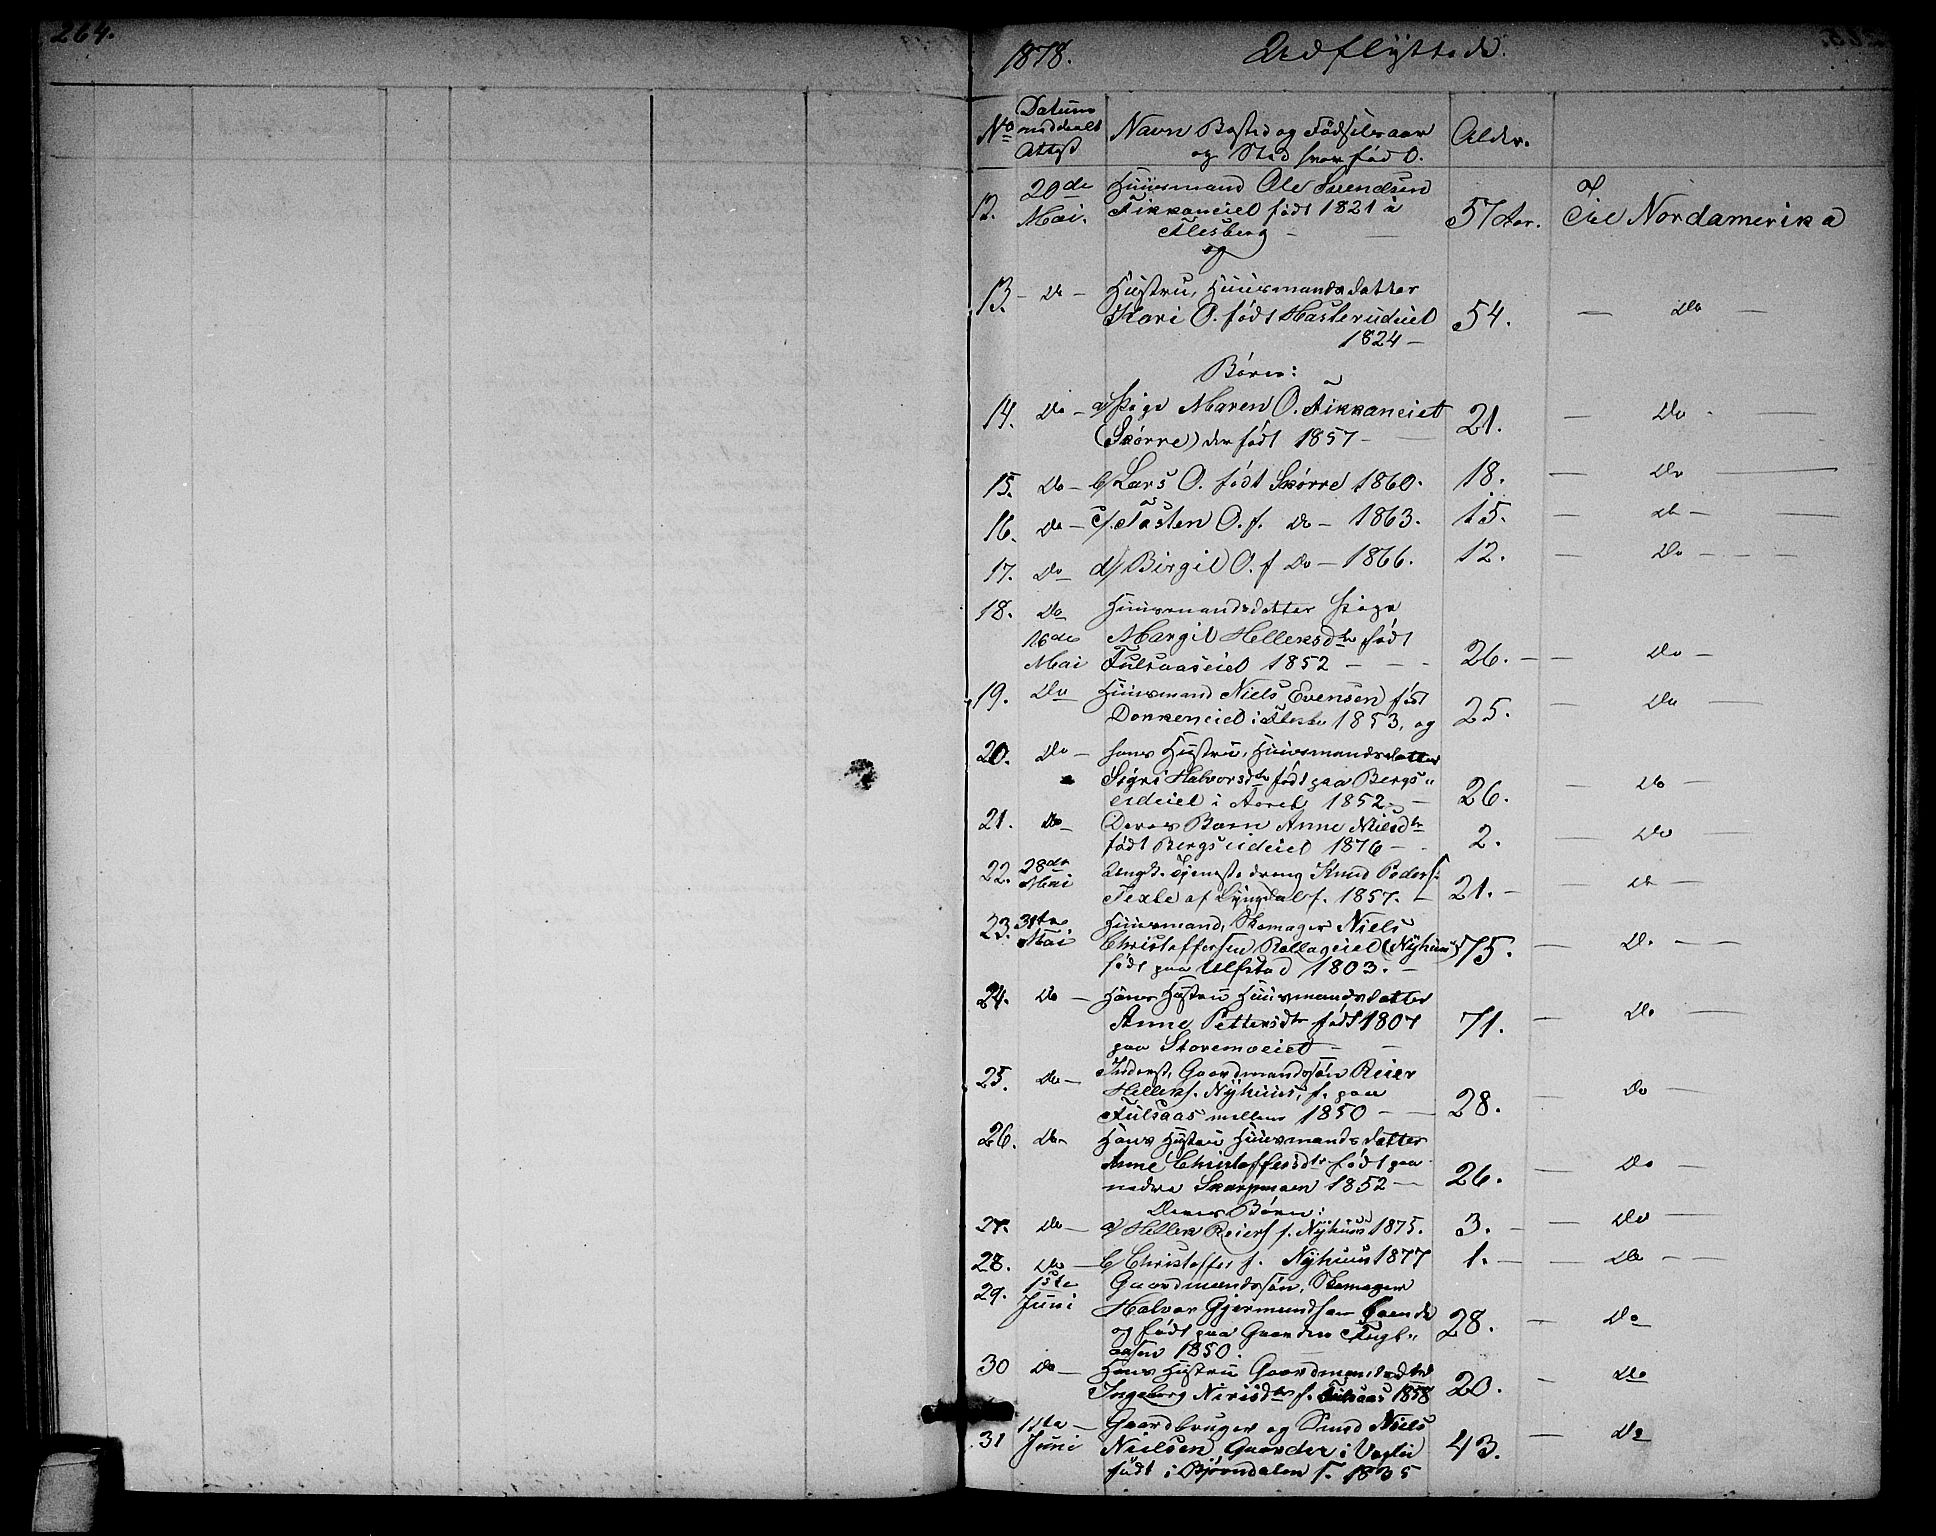 264.
1878. Udflyttede.
No Datum meddeelt Attest Navn Bosted og Fødselsaar og Sted hvor fød O. Alder.
12. 20de Mai. Huusmand Ole Svendsen
Fikkaneiet født 1821 i 57 Aar. Til Nordamerika
Flesberg
og
13. Do Hustru, Huusmandsdatter
Kari O. født Hasterudeiet 54. Do
1824
Børn:
14. Do a/ Pige Maren O. Fikkaneiet 21. Do
(Skørre) der født 1857
15. Do b/ Lars O. født Skørre 1860. 18. Do
16. Do c/ Tosten O. f. Do 1863. 15. Do
17. Do d/ Birgit O. f Do 1866. 12. Do
18. Do Huusmandsdatter Pige
16de Mai Margit Helleksdtr født
Fulsaaseiet 1852 26. Do
19. Do Huusmand Niels Evensen født
Donkeneiet i Flesb. 1853, og 25. Do
20. Do hans Hustru, Huusmandsdatter
Sigri Halvorsdtr født paa Bergs„
erdeiet i Aaret 1852 26. Do
21. Do Deres Barn Anne Nielsdtr
født Bergsrudeiet 1876 2. Do
22. 28de Mai Ungk. Tjenestedreng Knud Peders.
Texle af Lyngdal f. 1857. 21. Do
23. 31te Mai Huusmand, Skomager Niels
Christoffersen Rollageiet (Nyhuus) 75. Do
født paa Ulfstad 1803.
24. Do Hans Hustru Huusmandsdatter
Anne Pettersdtr født 1807 71. Do
paa Storemoeiet
25. Do Inderst, Gaardmandssøn Reier
Helleks. Nyhuus, f. paa
Fulsaas mellem 1850 28. Do
26. Do Hans Hustru Huusmandsdatter
Anne Christoffersdtr født paa
nedre Skarpmoen 1852 26. Do
Deres Børn:
27. Do a/ Hellek Reiers. f. Nyhuus 1875. 3. Do
28. Do b/ Christoffer f. Nyhuus 1877 1. Do
29. 1ste Juni Gaardmandssøn, Skomager
Halvor Gjermundsen boende
og født paa Gaarden Fugl„ 28. Do
aasen 1850.
30 Do Hans Hustru Gaardmandsdtr
Ingeborg Nirisdtr f. Fulsaas 1858 20. Do
31 11te Juni Gaardbruger og Smed Niels
Nielsen Gaarder i Vegli 43. Do
født i Bjørndalen f. 1835